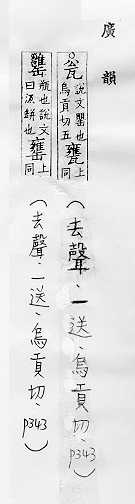 廣韻
瓮說文罌也烏貢切五甕上同
(去聲.一送.烏貢切.p343)
瓶也說文曰汲缾也罋上同
(去聲.一送.烏貢切.p343)